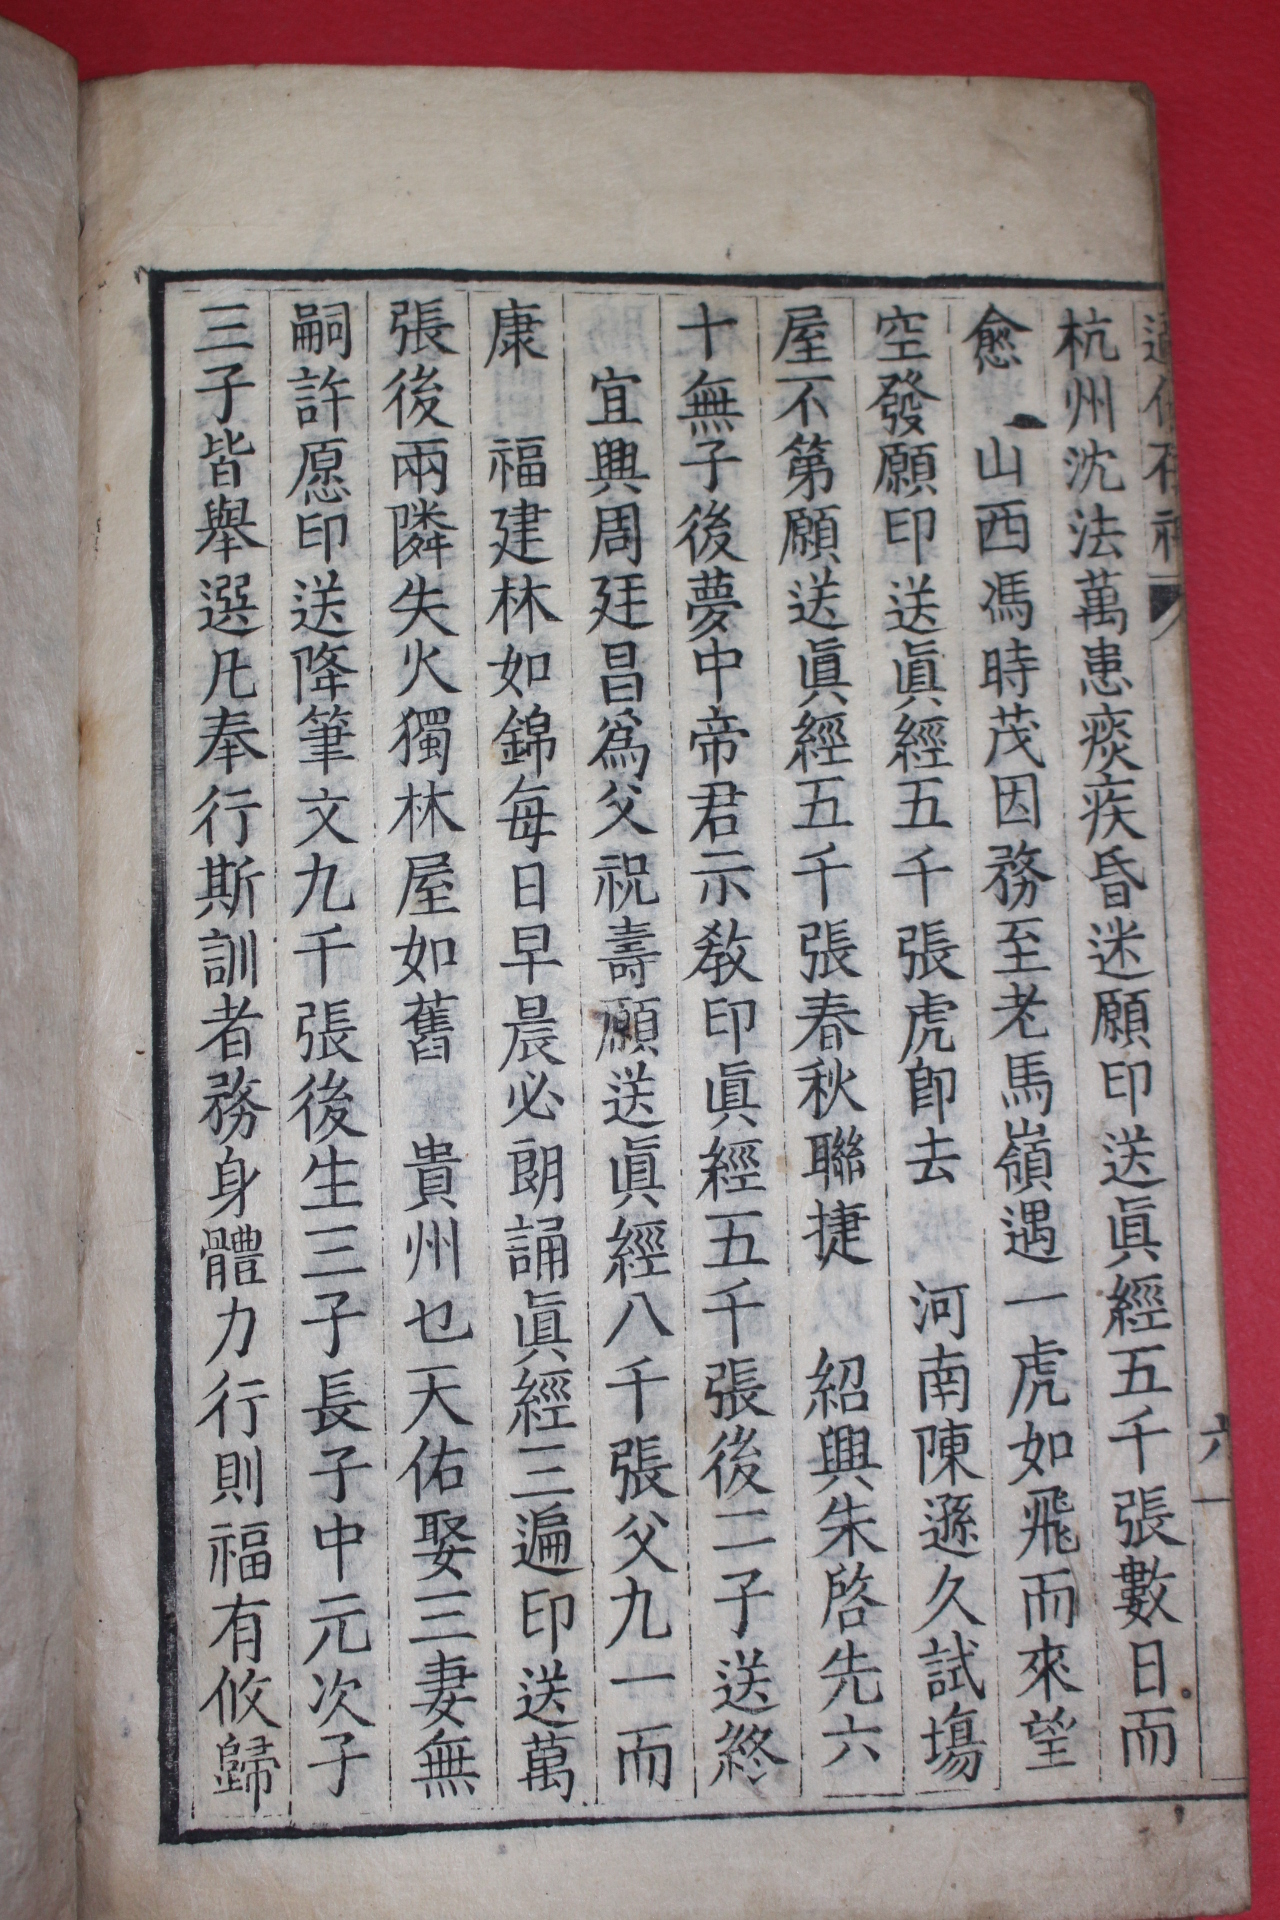 六
杭州沈法萬患痰疾昏迷願印送眞經五千張數日而
愈　山西馮時茂因務至老馬嶺遇一虎如飛而來望
空發願印送眞經五千張虎卽去　河南陳遜久試塲
屋不第願送眞經五千張春秋聯捷　紹興朱啓先六
十無子後夢中帝君示教印眞經五千張後二子送終
宜興周廷昌爲父祝壽願送眞經八千張父九一而
康　福建林如錦每日早晨必朗誦眞經三遍印送萬
張後兩隣失火獨林屋如舊　貴州乜天佑娶三妻無
嗣許愿印送降筆文九千張後生三子長子中元次子
三子皆舉選凡奉行斯訓者務身體力行則福有攸歸